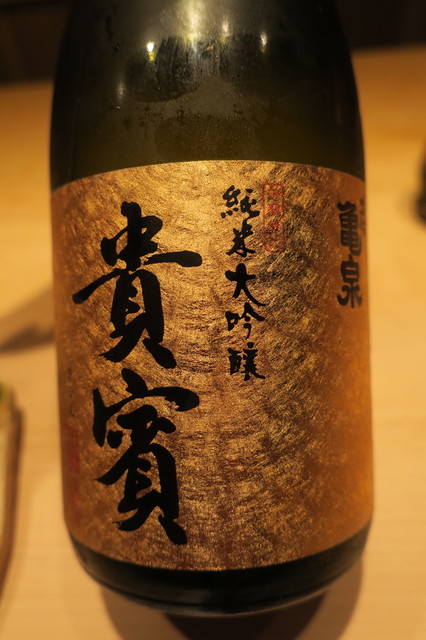 亀泉
純米大吟醸
貴賓